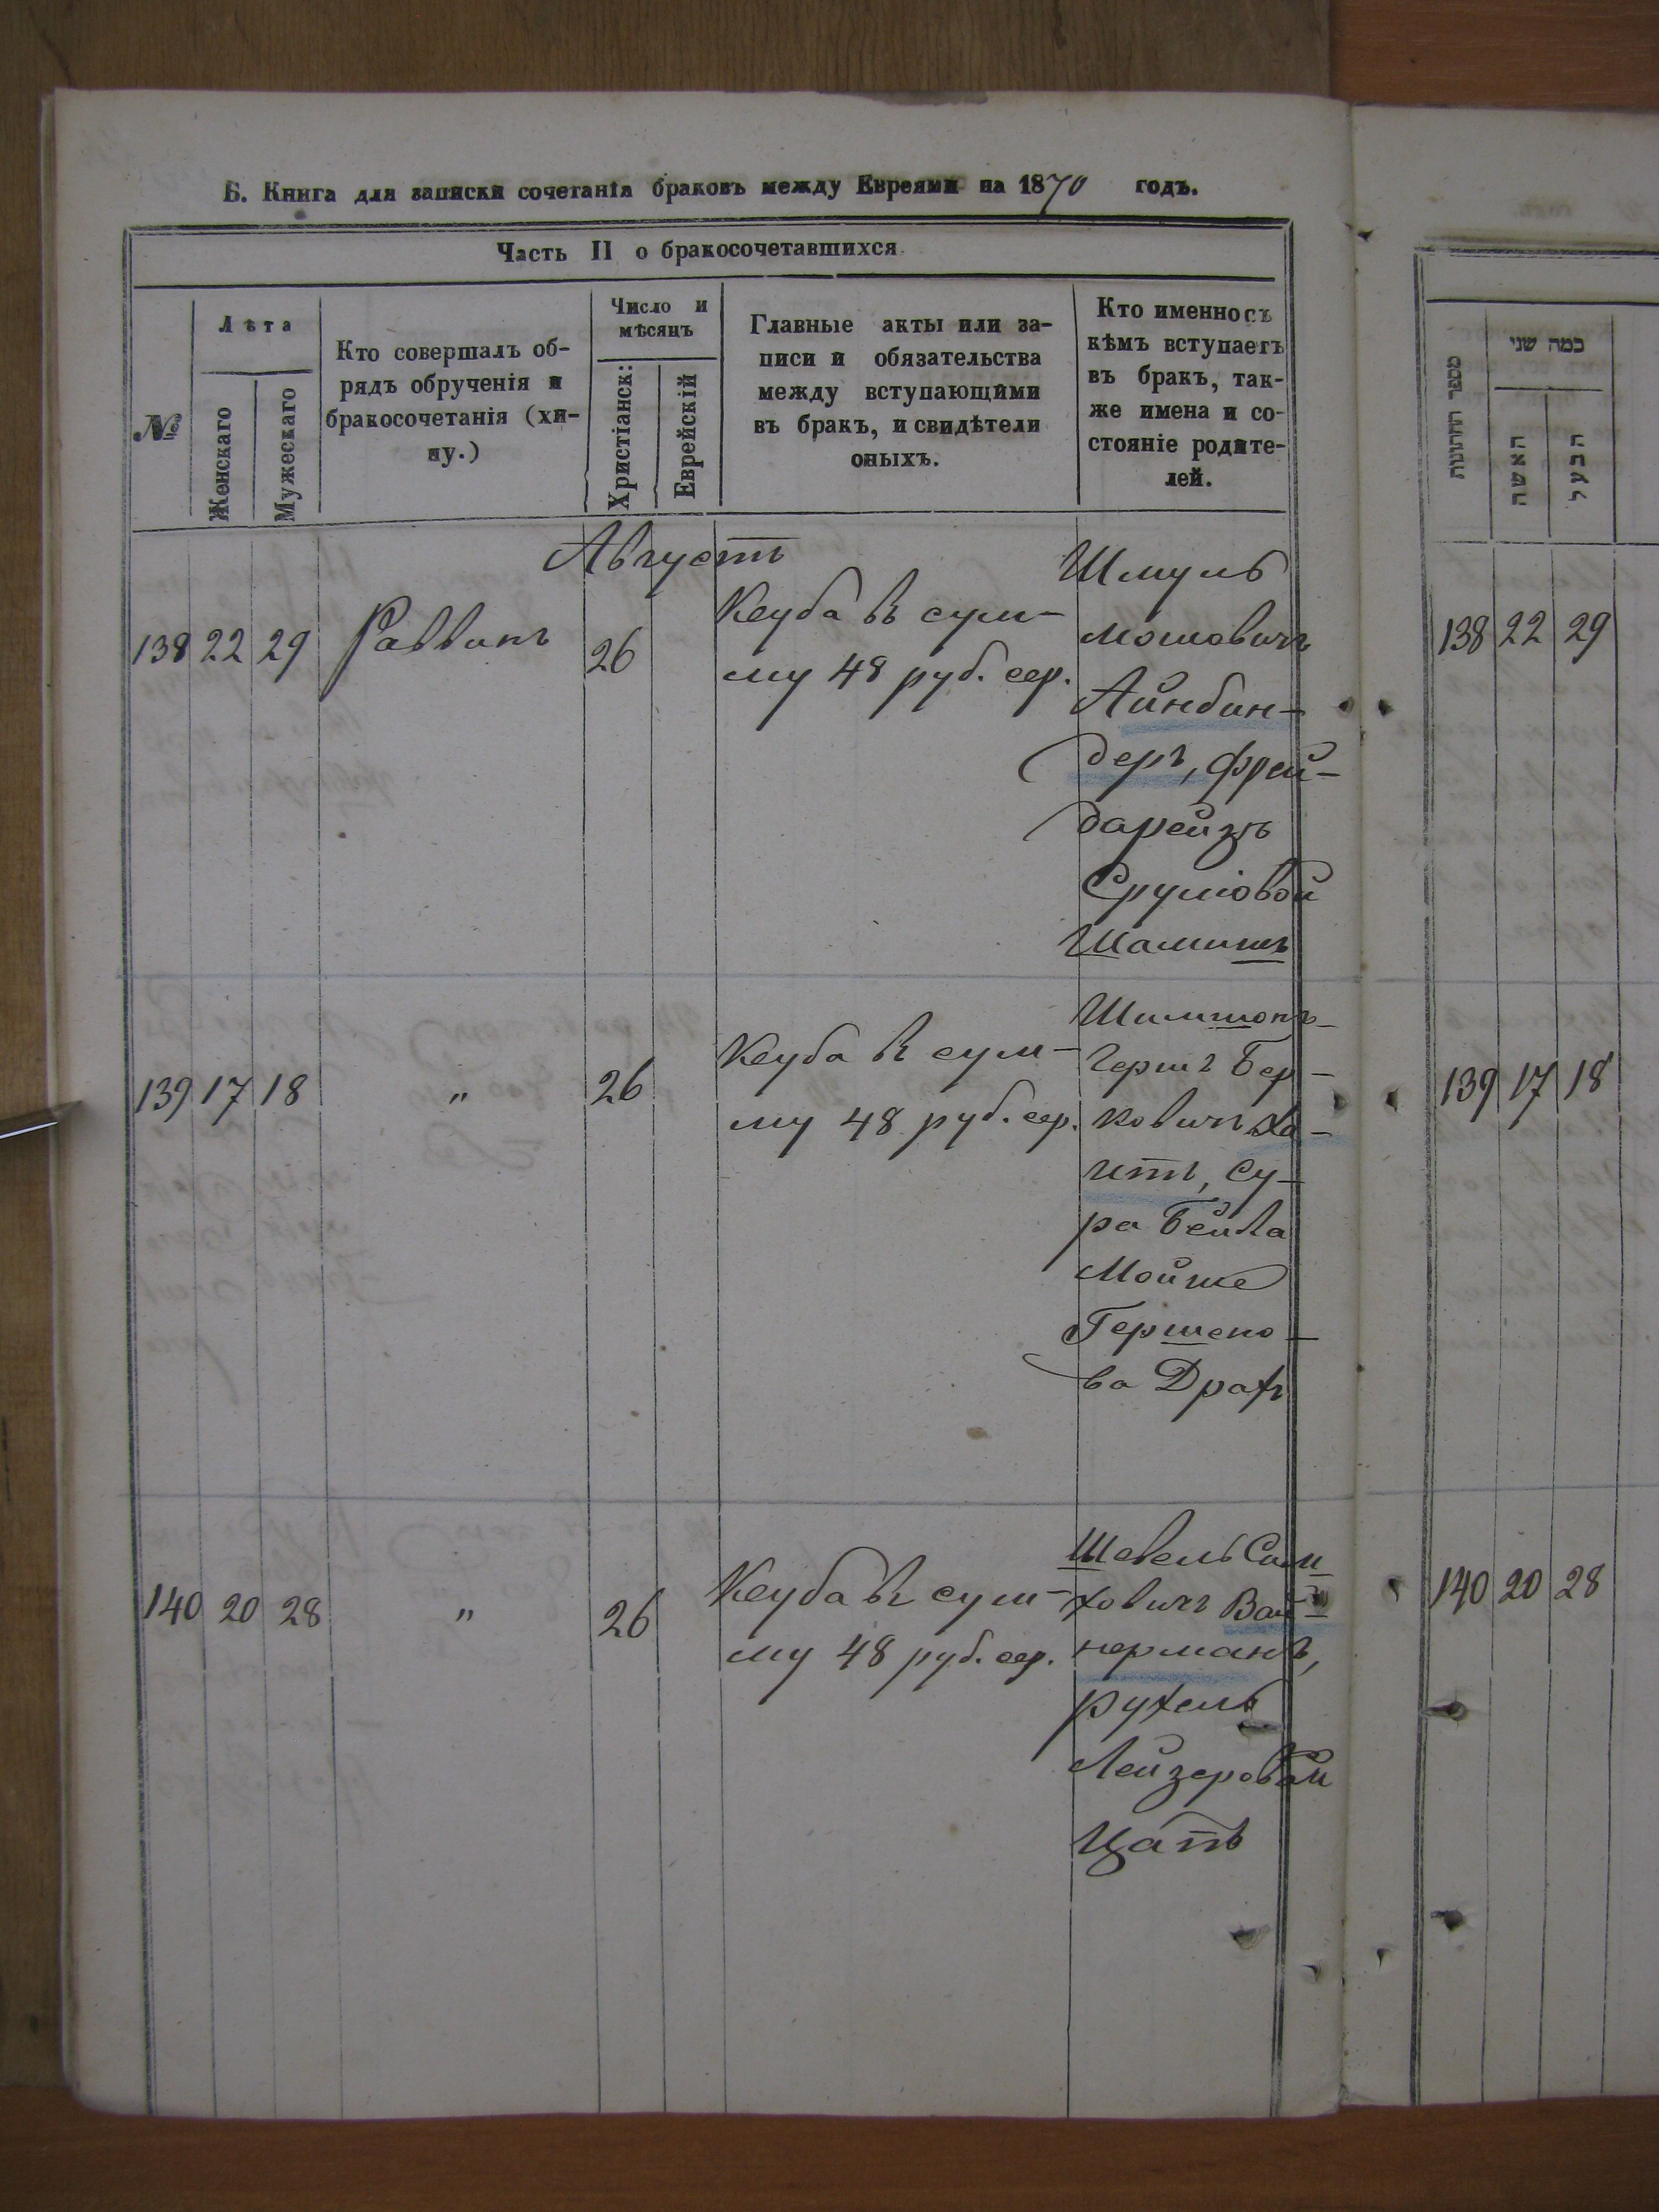 Б. Книга для записки сочетанія браковъ между Евреями на 1870 годъ.
Часть II о бракосочетавшихся
№
Лѣта
Женскаго
Мужескаго
Кто совершалъ об-
рядъ обрученія и
бракосочетанія (хи-
пу.)
Число и
мѣсяцъ
Христіанск:
Еврейскій
Главные акты или за-
писи и обязательства
между вступающими
въ бракъ, и свидѣтели
оныхъ.
Кто именно съ
кѣмъ вступаетъ
въ бракъ, так-
же имена и со-
стояніе родите-
лей.
Августъ
138 22 29 Раввинъ 26
Кеуба въ сум-
му 48 руб. сер.
Шмуль
Мошовичъ
Айнбин-
деръ, фрей-
дарейзъ
Сруліовой
Шамишъ
139 17 18 " 26
Кеуба въ сум-
му 48 руб. сер.
Шимшонъ-
Гершъ Бер-
ковичъ Ха-
итъ, Су-
ра Бейла
Мойше
Гершено-
ва Драхъ
140 20 28 " 26
Кеуба въ сум-
му 48 руб. сер.
Шевель Сим
ховичъ Вай-
нерманъ,
рухель
Лейзеровой
Цапъ
מספר החתונות
כמה שני
האשה
הבעל
138 22 29
139 17 18
140 20 28